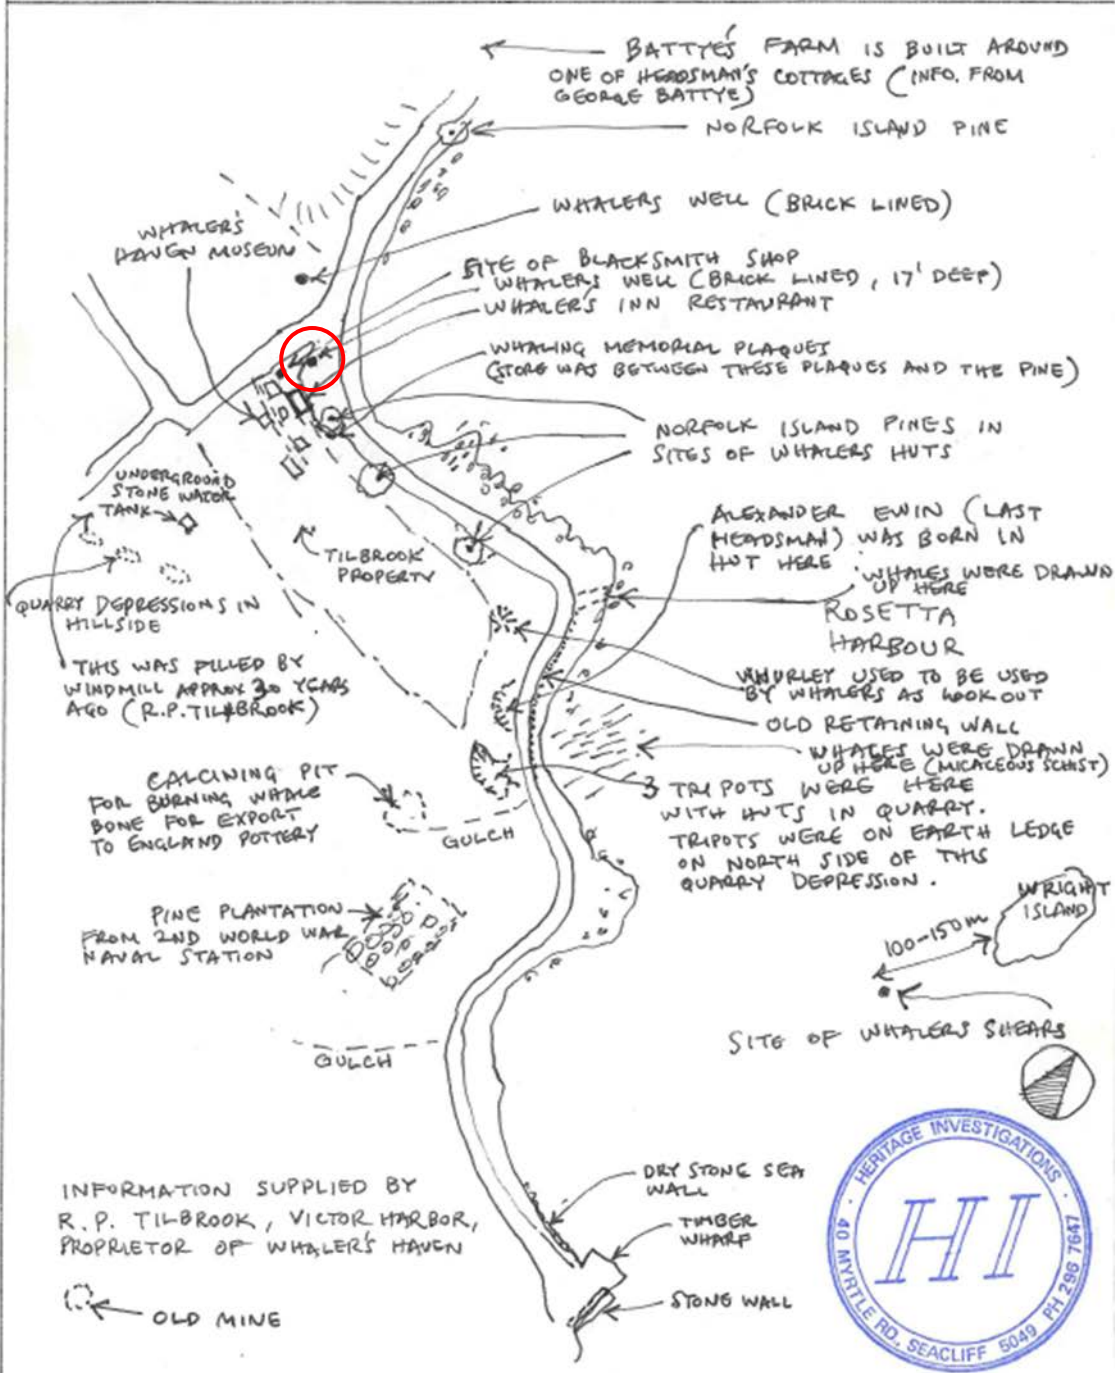 BATTYE'S FARM IS BUILT AROUND
ONE OF HEADSMAN'S COTTAGES (INFO. FROM
GEORGE BATTYE)
NORFOLK ISLAND PINE
WHALERS WELL (BRICK LINED)
WHALER'S
HAVEN MUSEUM
SITE OF BLACKSMITH SHOP
WHALERS WELL (BRICK LINED, 17' DEEP)
WHALER'S INN RESTAURANT
WHALING MEMORIAL PLAQUES
(STORE WAS BETWEEN THESE PLAQUES AND THE PINE)
NORFOLK ISLAND PINES IN
SITES OF WHALERS HUTS
UNDERGROUND
STONE WATER
TANK
TILBROOK
PROPERTY
ALEXANDER EWIN (LAST
HEADSMAN) WAS BORN IN
HUT HERE
WHALES WERE DRAWN
UP HERE
ROSETTA
HARBOUR
QUARRY DEPRESSIONS IN
HILLSIDE
THIS WAS FILLED BY
WINDMILL APPROX 30 YEARS
AGO (R.P. TILBROOK)
WHURLEY USED TO BE USED
BY WHALERS AS LOOKOUT
OLD RETAINING WALL
WHALES WERE DRAWN
UP HERE (MICACEOUS SCHIST)
3 TRIPOTS WERE HERE
WITH HUTS IN QUARRY.
TRIPOTS WERE ON EARTH LEDGE
ON NORTH SIDE OF THIS
QUARRY DEPRESSION.
CALCINING PIT
FOR BURNING WHALE
BONE FOR EXPORT
TO ENGLAND POTTERY
GULCH
WRIGHT
ISLAND
100-150m
PINE PLANTATION
FROM 2ND WORLD WAR
NAVAL STATION
SITE OF WHALERS SHEARS
GULCH
INFORMATION SUPPLIED BY
R.P. TILBROOK, VICTOR HARBOR,
PROPRIETOR OF WHALER'S HAVEN
OLD MINE
DRY STONE SEA
WALL
TIMBER
WHARF
STONE WALL
HERITAGE INVESTIGATIONS
HI
40 MYRTLE RD, SEACLIFF 5049 PH 296 7647